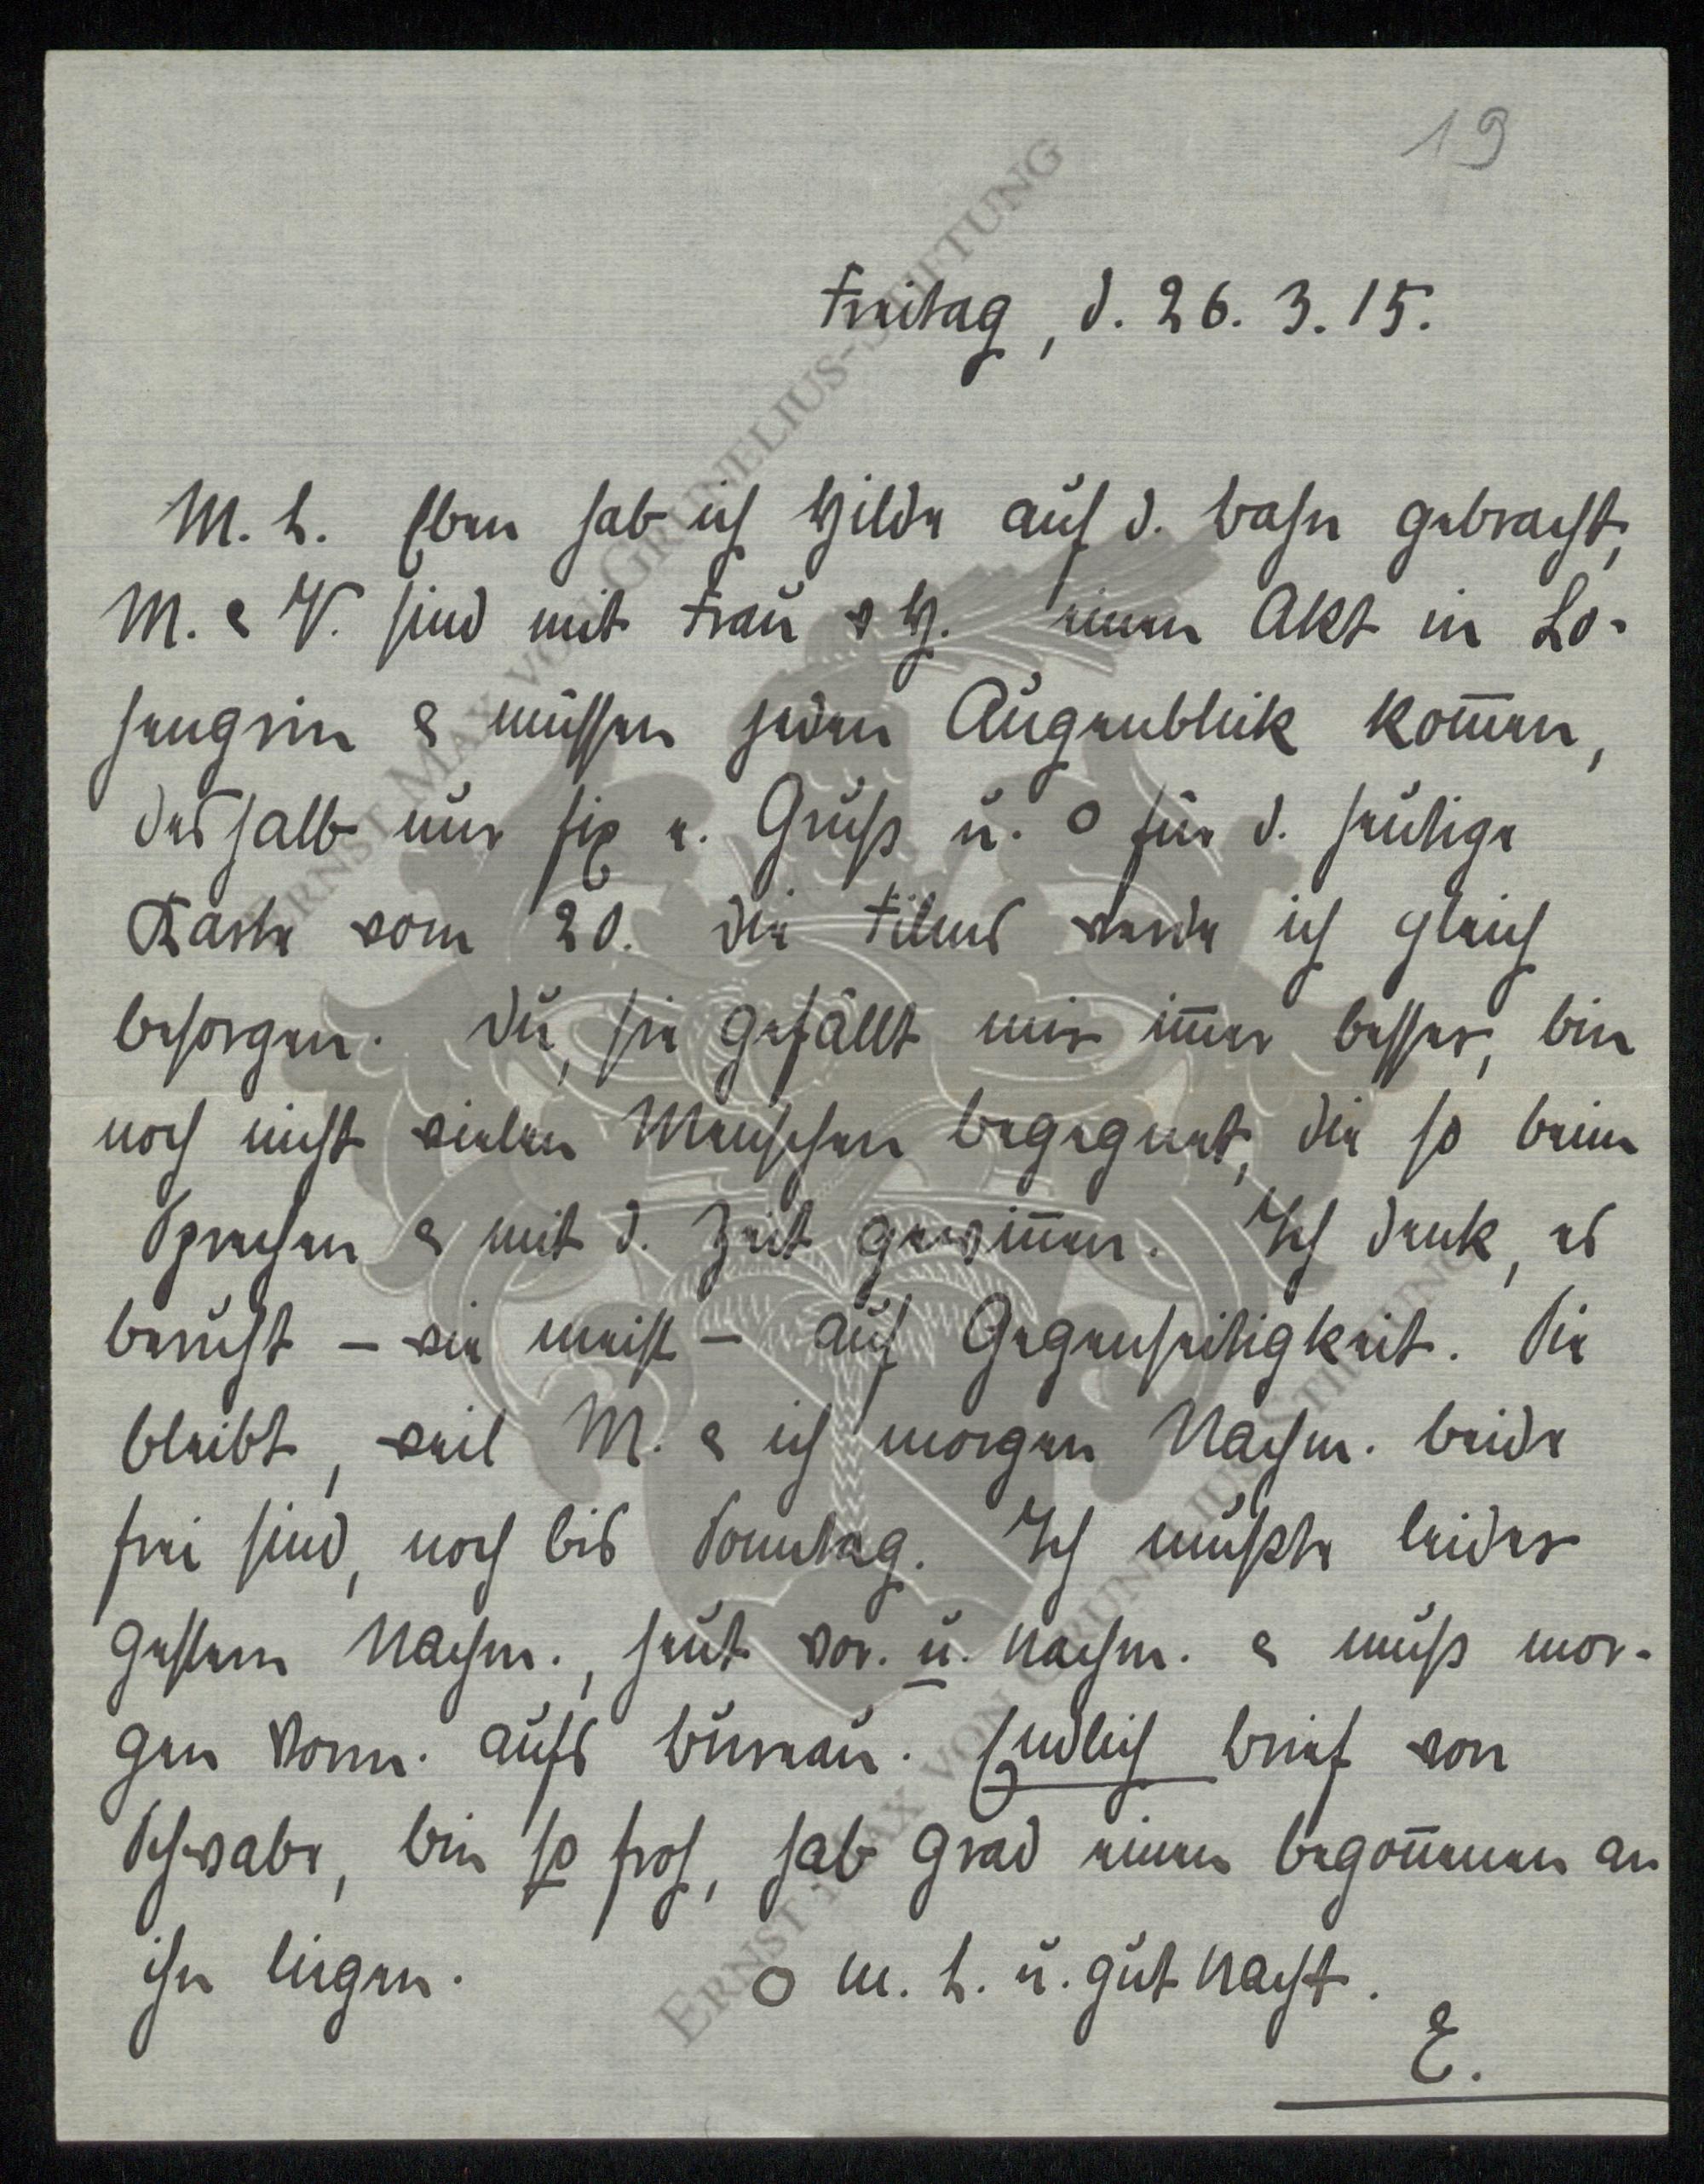 19
Freitag, d. 26. 3. 15.
M. L. Eben hab ich Hilde auf d. Bahn gebracht,
M. & V. sind mit Frau v H. einen Akt in Lo-
hengrin & müssen jeden Augenblick kom̅en,
deshalb nur fix e. Gruß u. O für d. heutige
Karte vom 20. Die Films werde ich gleich
besorgen. Du, sie gefällt mir im̅er besser, bin
noch nicht vielen Menschen begegnet, die so beim
Sprechen & mit d. Zeit gewin̅en. Ich denk, es
beruht – wie meist – auf Gegenseitigkeit. Sie
bleibt, weil M. & ich morgen Nachm. beide
frei sind, noch bis Sonntag. Ich mußte leider
gestern Nachm., heut vor. u. nachm. & muß mor-
gen Vorm. aufs Bureau. Endlich Brief von
Schwabe, bin so froh, hab grad einen begon̅enen an
ihn liegen. O m. L. u. gut Nacht.
E.
ERNST MAX VON GRUNELIUS-STIFTUNG
ERNST MAX VON GRUNELIUS-STIFTUNG